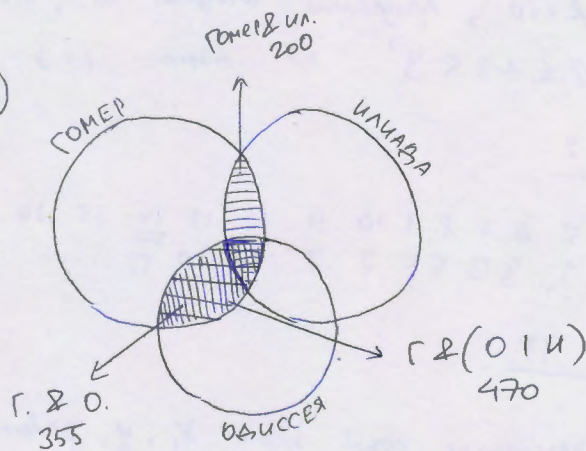 Гомер & ил.
200
)
ГОМЕР
ИЛИАДА
Г & (О | И)
470
Г. & О.
355
ОДИССЕЯ